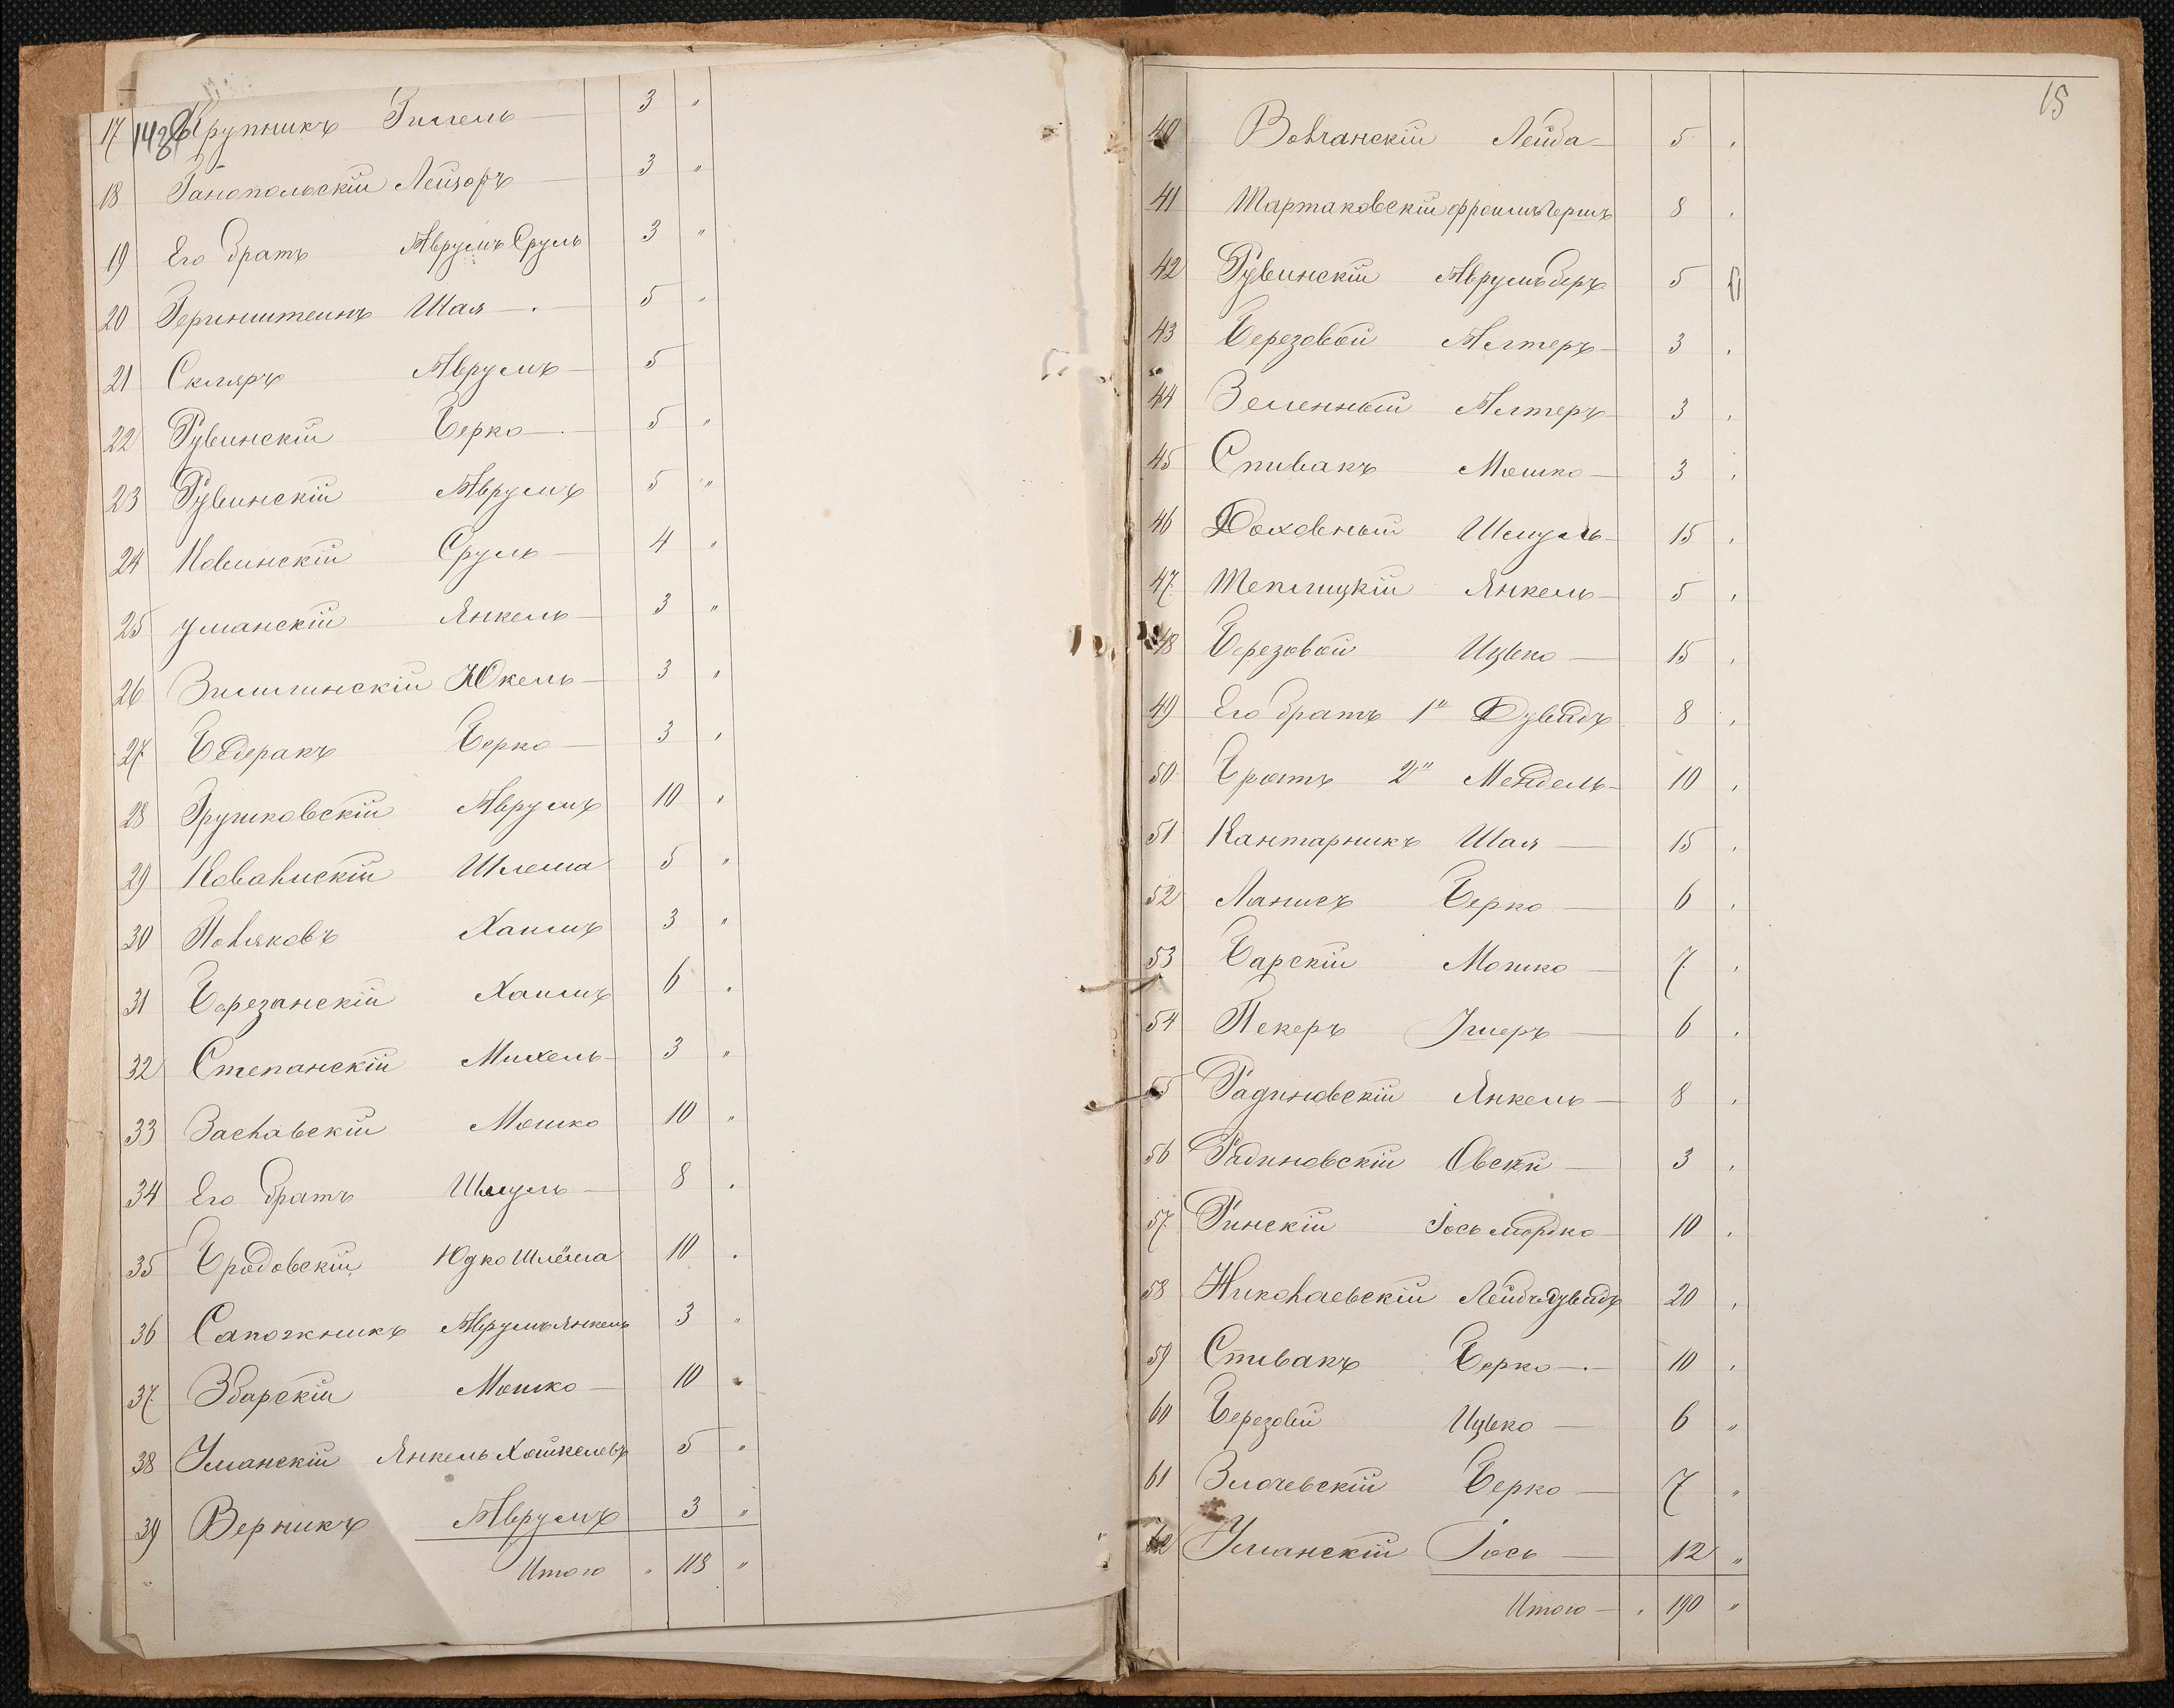 17 1428 Крупникъ Гилель — 3 "
18 Ганопольскій Лейзоръ — 3 "
19 Его братъ Аврумъ Сруль 3 "
20 Геринштеинъ Шая — 5 "
21 Скляръ Аврумъ — 5
22 Рувинскій Берко — 5 "
23 Рувинскій Аврумъ 5 "
24 Новинскій Сруль — 4 "
25 Уманскій Янкель — 3 "
26 Юкель — 3 "
27 Бедеракъ Берко — 3 "
28 Грушковскій Аврумъ 10 "
29 Шлема 5 "
30 Поляковъ Хаимъ 3 "
31 Березанскій Хаимъ 6 "
32 Степанскій Михель — 3 "
33 Заславскій Мошко 10 "
34 Его братъ Шмуль — 8 "
35 Бродовскій Юдко Шлёма 10 "
36 Сапожникъ Аврумъ Янкель 3 "
37 Збарскій Мошко — 10 "
38 Уманскій Янкель Хаикелевъ 5 "
39 Верникъ Аврумъ 3 "
Итого " 118 "
15
40 Волчанскій Лейба — 5 "
41 Тартаковскій Фроимъ Гершъ 8 "
42 Рувинскій Аврумъ Беръ 5 "
43 Березовой Алтеръ — 3 "
44 Зеленный Алтеръ — 3 "
45 Спивакъ Мошко — 3 "
46 Духовный Шмуль — 15 "
47 Теплицкій Янкель — 5 "
48 Березовой Ицько — 15 "
49 Его братъ 1й Дувидъ 8 "
50 Братъ 2й Мендель — 10 "
51 Кантарникъ Шая — 15 "
52 Ланисъ Берко — 6 "
53 Барскій Мошко — 7 "
54 Пекеръ — 6 "
55 Радиновскій Янкель — 8 "
56 Радиновскій Овсей — 3 "
57 Ринскій Іось Мордко — 10 "
58 Николаевскій Лейбъ Дувидъ 20 "
59 Спивакъ Берко — 10 "
60 Березовой Ицько — 6 "
61 Злочевскій Берко — 7 "
62 Уманскій Іось — 12 "
Итого — " 190 "